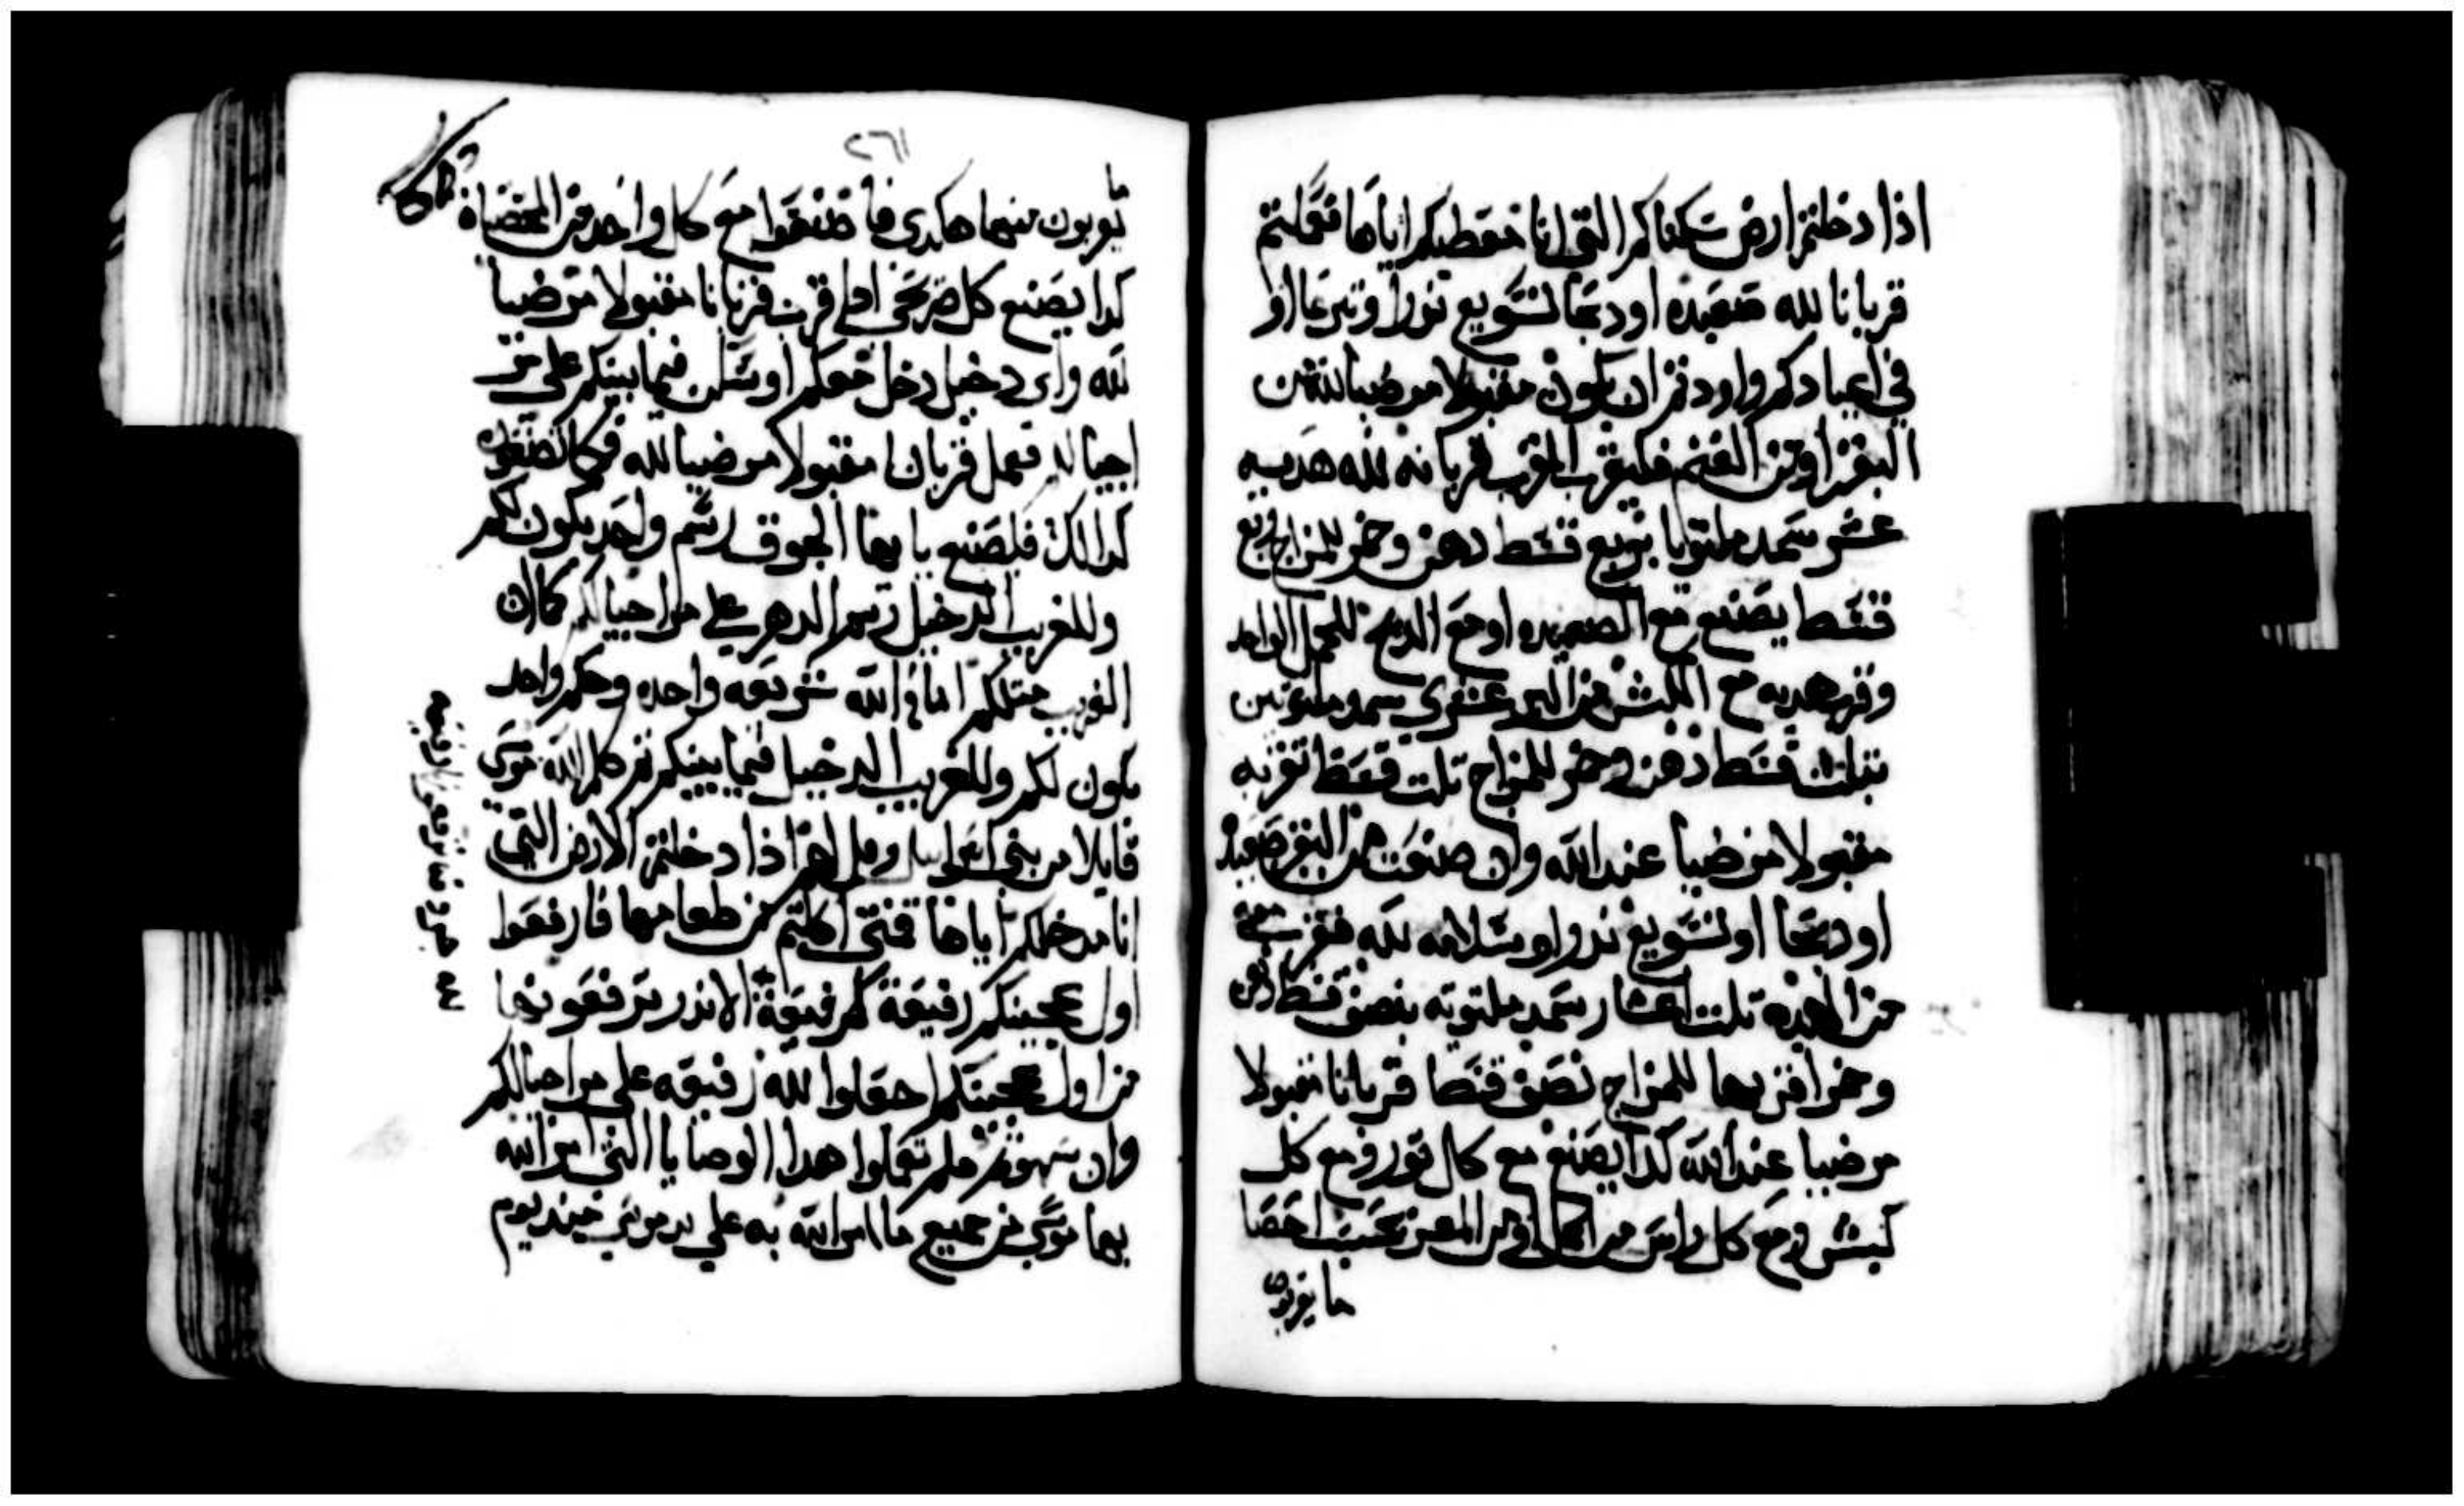 اذا دخلتم ارض سكناكم التي انا معطيكم اياها فعملتم
قربانا لله صعيده او دبحا لتسويع نذرا وتبرعا او
في اعيادكم واردتم ان يكون مقبولا مرضيا لله من
البقر او من الغنم فليقرب المقرب قربانه لله هديه
عشر سمد ملتوتا بربع قسط دهن وخمر للمزاج ربع
قسط يصنع مع الصعيده او مع الدبح للحمل الواحد
وقرب هديه مع الكبش من البر عشري سمد ملتوتين
بتلت قسط دهن وخمر للمزاج تلت قسط تقربه
مقبولا مرضيا عند الله وان صنعت من البقر صعيده
او دبحا او لتسويع نذر او سلامه لله فقرب معه
من الهديه تلت اعشار سمد ملتوته بنصف قسط دهن
وخمرا قربها للمزاج نصف قسط قربانا مقبولا
مرضيا عند الله كدا يصنع مع كل تور ومع كل
كبش ومع كل راس من الحمل او من المعز بحسب احصا
ما يقربون
٢٦١
ما
يقربون منهما هكدي فاصنعوا مع كل واحد من المحصاه
كدا يصنع كل صريحي ادا قرب قربانا مقبولا مرضيا
لله واي دخيل دخل معكم او سكن فيما بينكم على مر
اجيالكم فعمل قربانا مقبولا مرضيا لله فكما تصنعون
كدالك فليصنع يا ايها الجوق رسم واحد يكون لكم
وللغريب الدخيل رسم الدهر على مر اجيالكم كما ان
الغريب متلكم امام الله شريعه واحده وحكم واحد
يكون لكم وللغريب الدخيل فيما بينكم تم كلم الله موسى
قايلا مر بني اسراييل وقل لهم اذا دخلتم الارض التي
انا مدخلكم اياها فمتى اكلتم من طعامها فارفعوا
اول عجينكم رفيعة كرفيعة الاندر ترفعونها
من اول عجينكم اجعلوا لله رفيعه على مر اجيالكم
وان سهوتم فلم تعملوا هدا الوصايا التي امر الله
بها موسى من جميع ما امر الله به على يد موسى منذ يوم